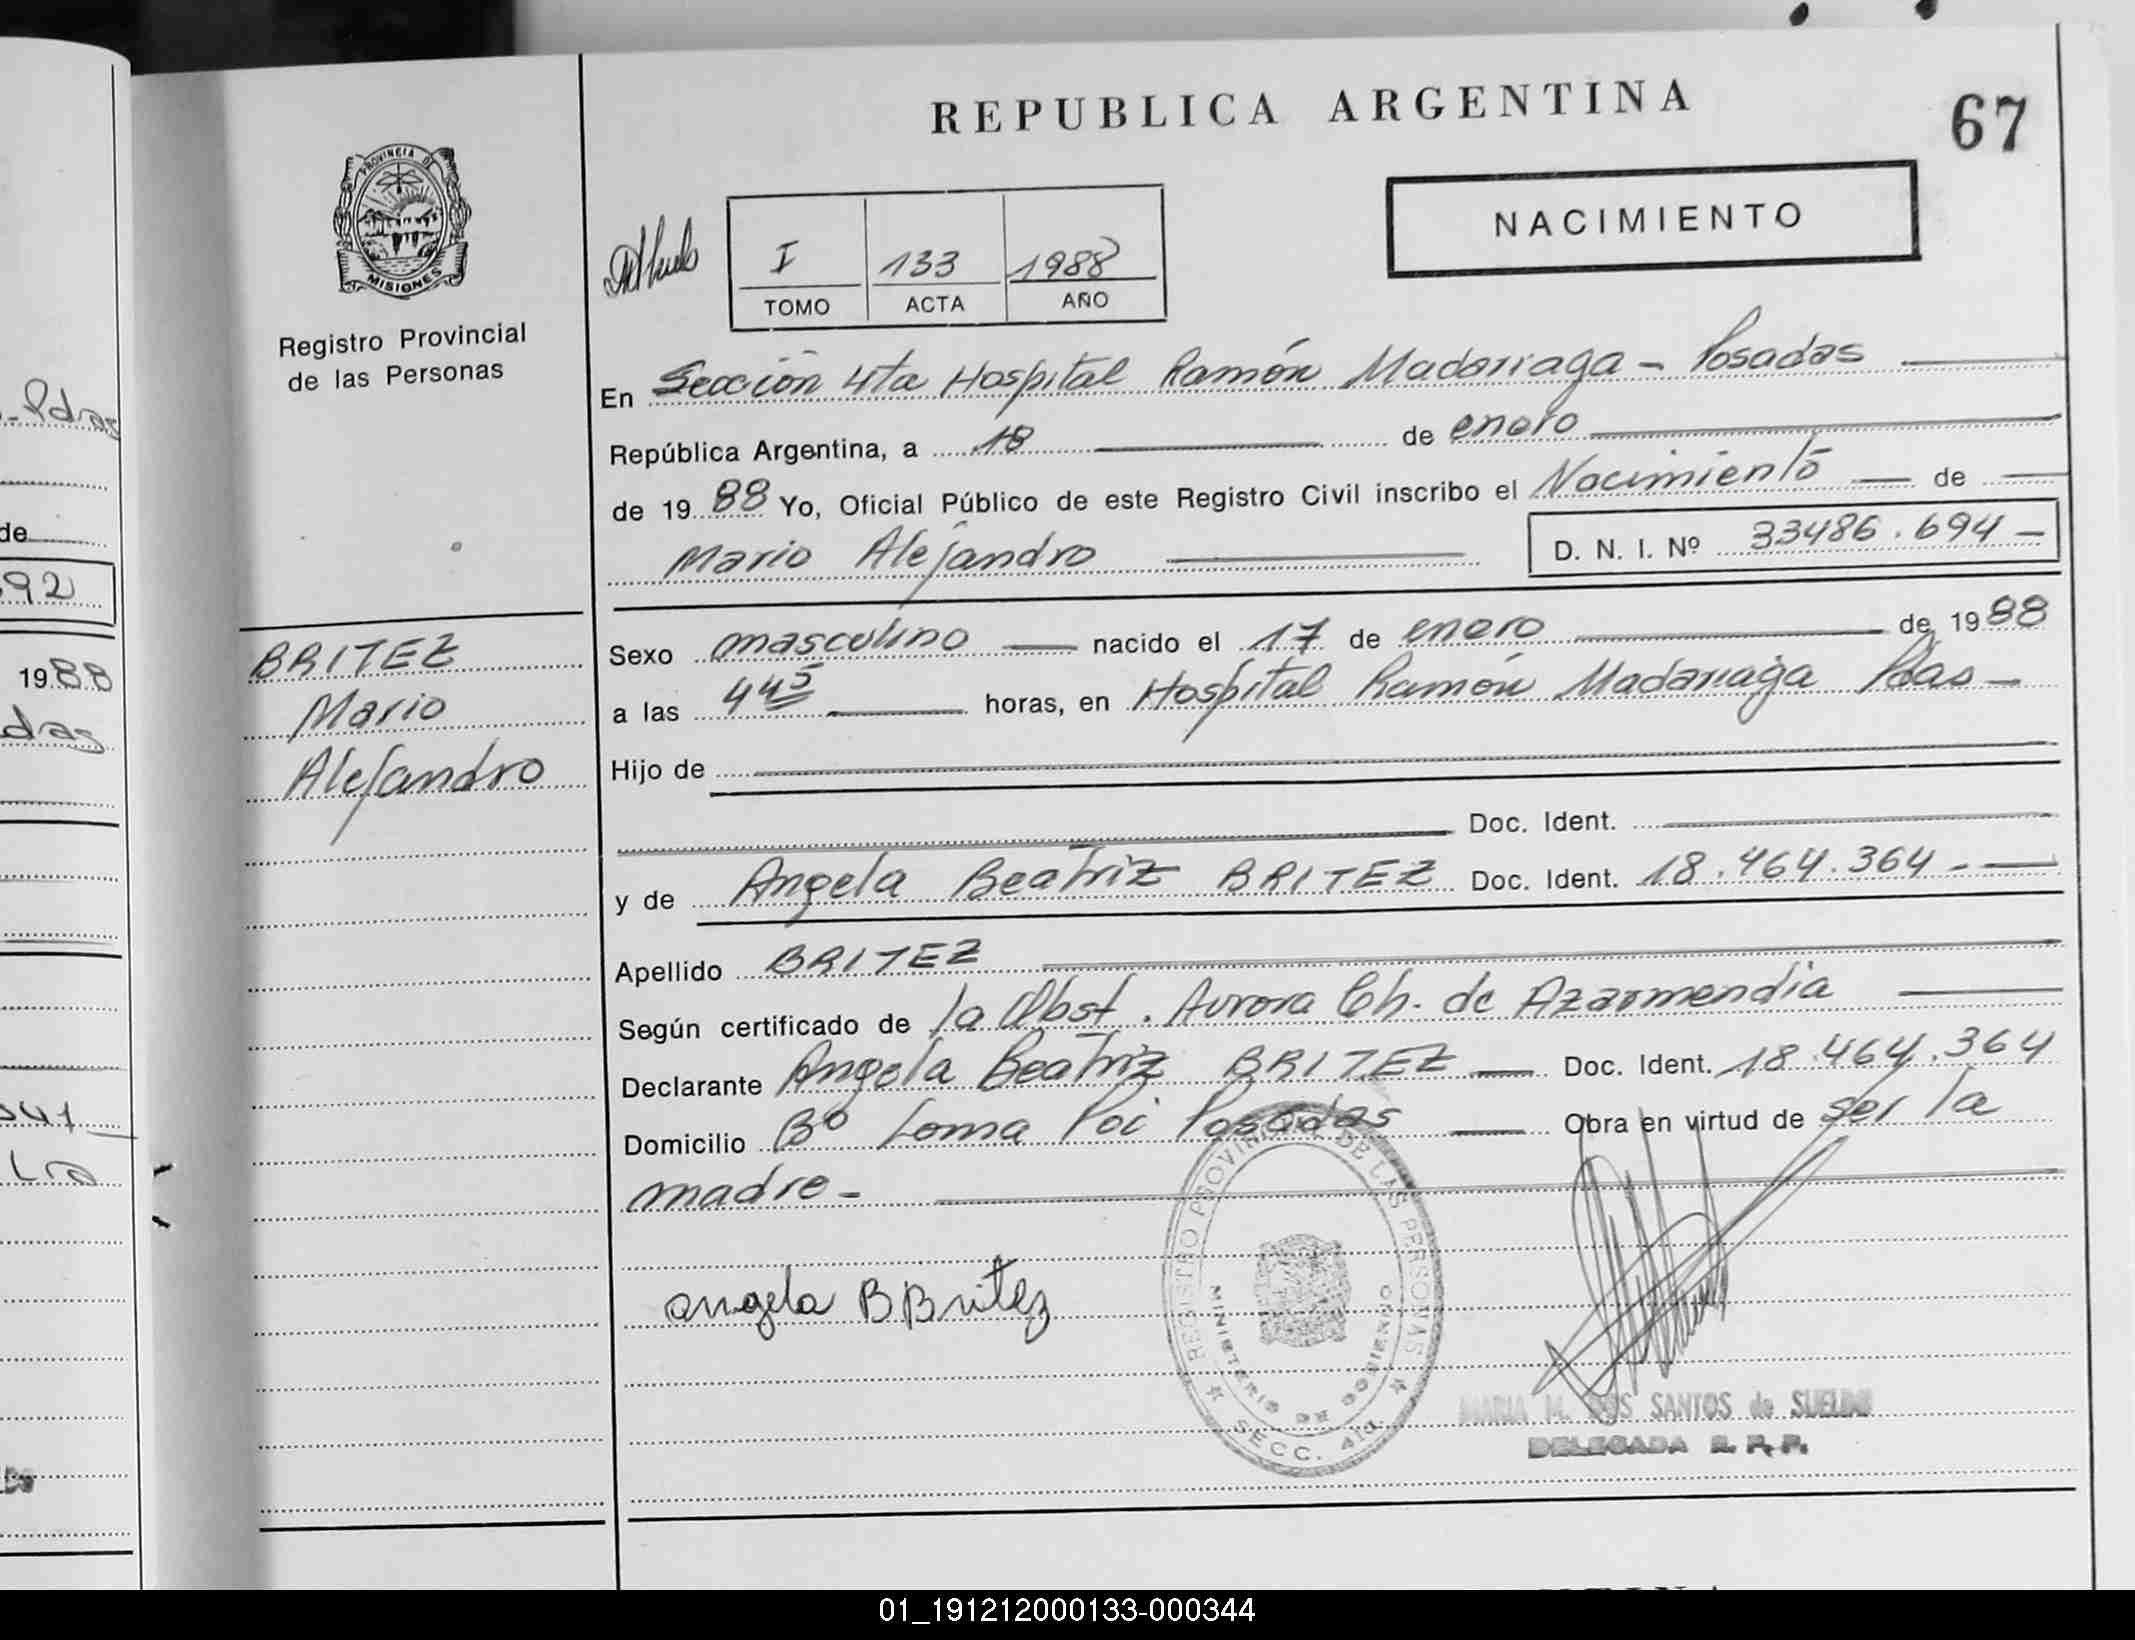 REPUBLICA ARGENTINA
67
PROVINCIA DE
MISIONES
Registro Provincial
de las Personas
NACIMIENTO
I 133 1988
TOMO ACTA AÑO
En Sección 4ta Hospital Ramón Madariaga - Posadas
República Argentina, a 18 de enero
de 1988 Yo, Oficial Público de este Registro Civil inscribo el Nacimiento de
Mario Alejandro D. N. I. Nº 33486.694 -
BRITEZ
Mario
Alejandro
Sexo masculino nacido el 17 de enero de 1988
a las 4 45 horas, en Hospital Ramón Madariaga Pdas -
Hijo de
Doc. Ident.
y de Angela Beatriz BRITEZ Doc. Ident. 18.464.364 -
Apellido BRITEZ
Según certificado de la Obst. Aurora Ch. de Azarmendia
Declarante Angela Beatriz BRITEZ Doc. Ident. 18.464.364
Domicilio Bº Loma Poi Posadas Obra en virtud de ser la
madre -
angela B Britez
REGISTRO PROVINCIAL DE LAS PERSONAS
MINISTERIO DE GOBIERNO
SECC. 4ta
MARIA M. DOS SANTOS de SUELDO
DELEGADA R. P. P.
Pdas
de
92
1988
das
041
01_191212000133-000344